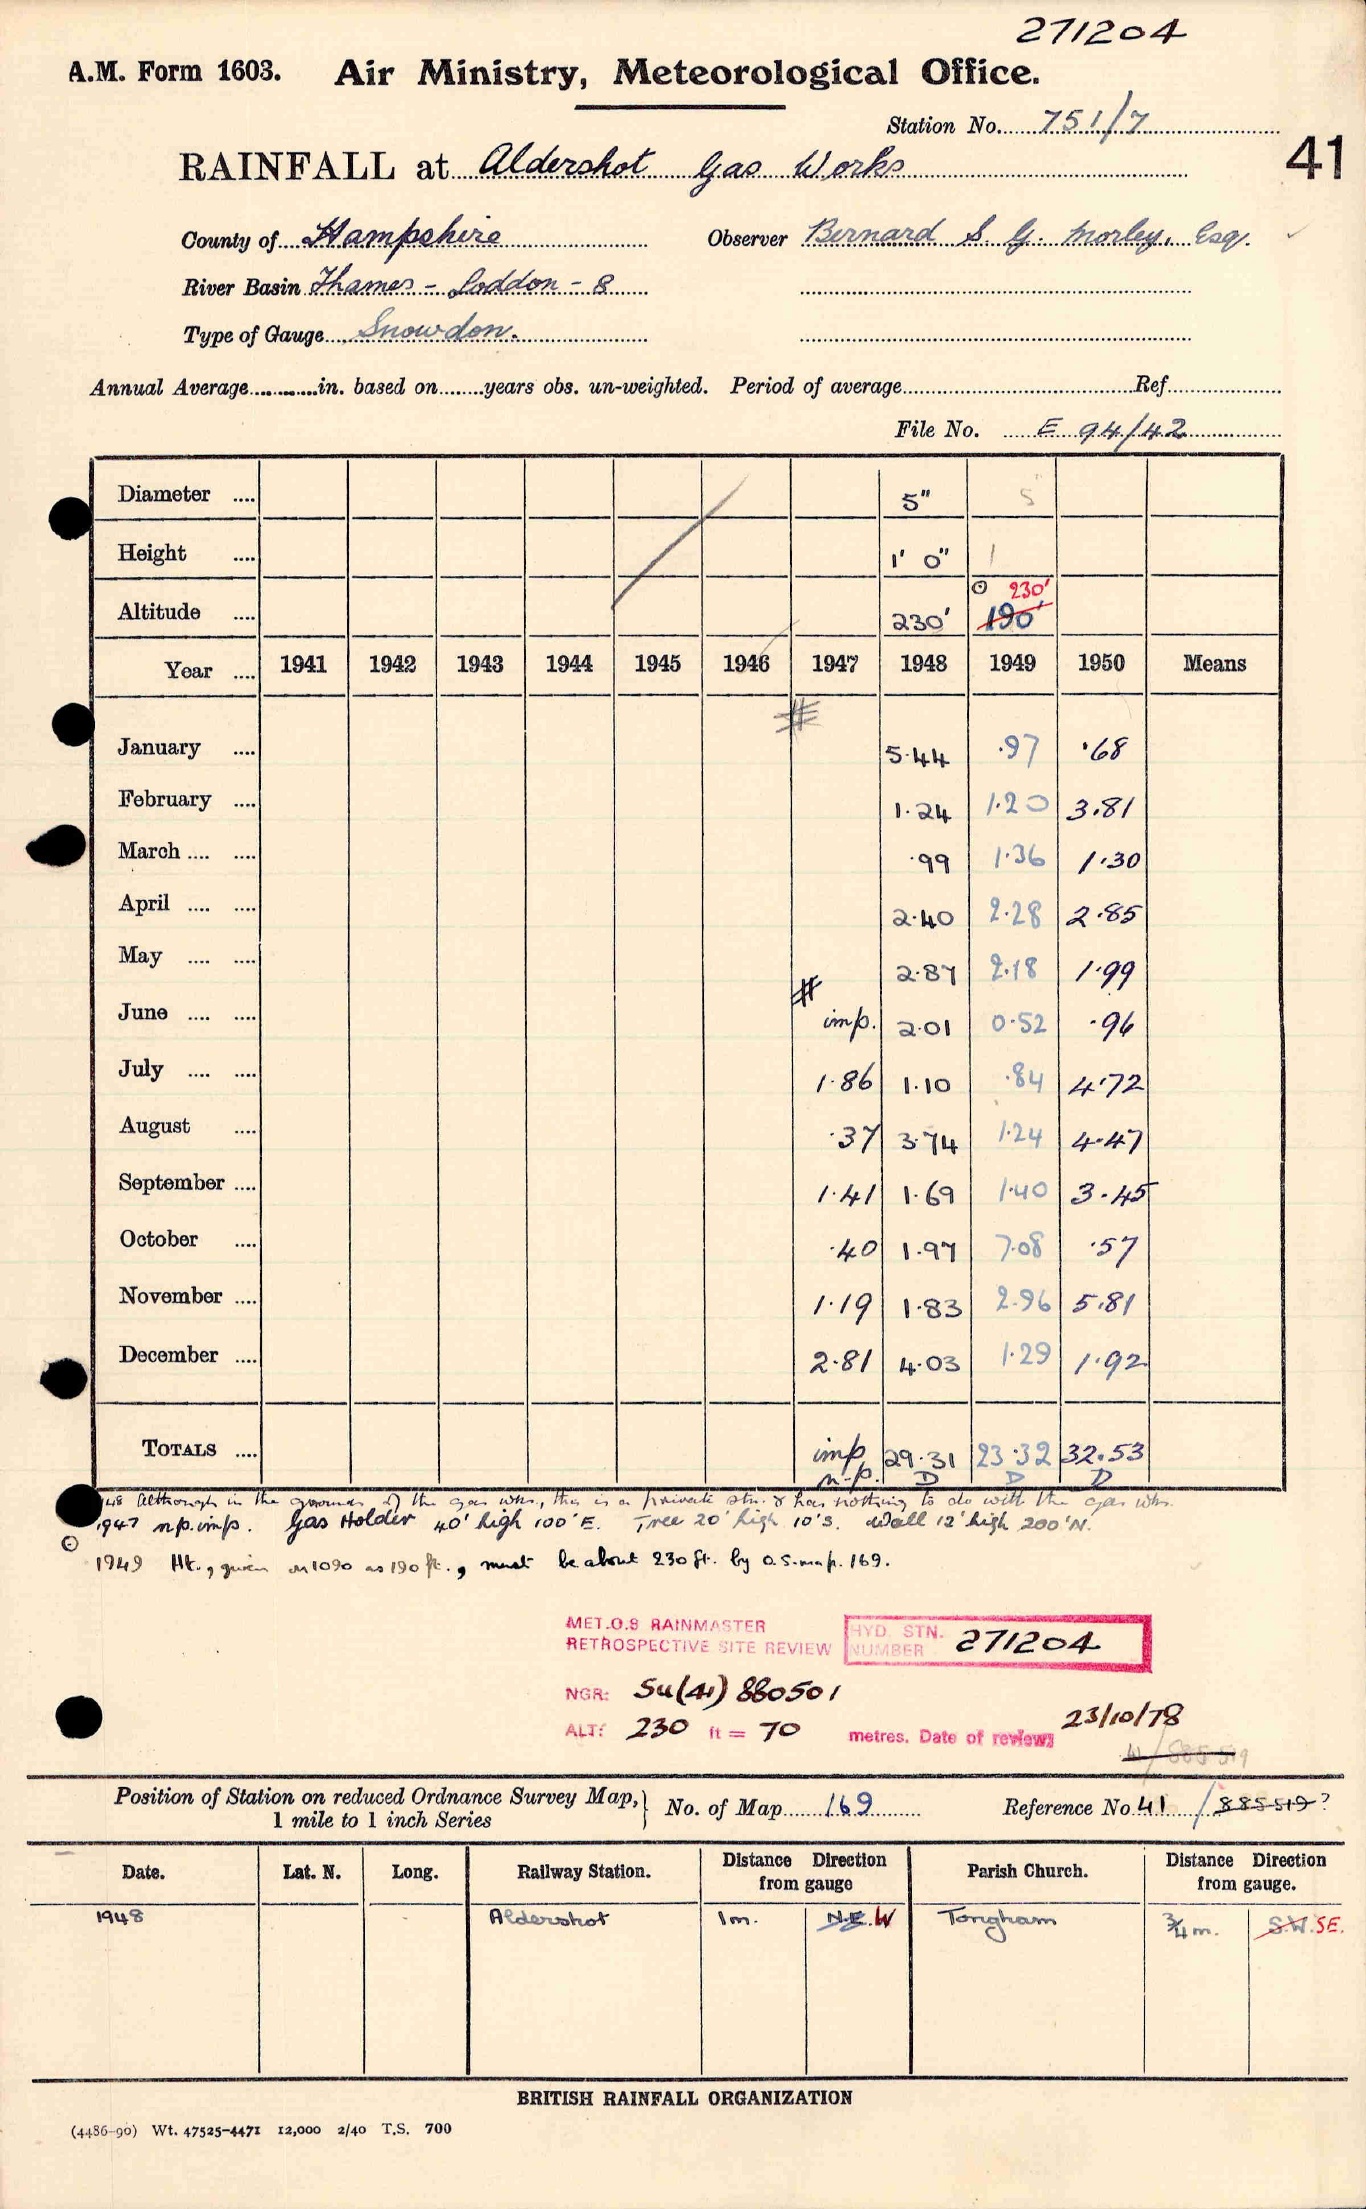 271204
A.M. Form 1603. Air Ministry, Meteorological Office.
Station No. 751/7
41
RAINFALL at Aldershot Gas Works
County of Hampshire Observer Bernard S. G. Morley, Esq.
River Basin Thames - Loddon - 8
Type of Gauge Snowdon.
Annual Average in. based on years obs. un-weighted. Period of average Ref
File No. E 94/42
Diameter 5" 5"
Height 1' 0" 1
230'
Altitude 230' 190'
Year 1941 1942 1943 1944 1945 1946 1947 1948 1949 1950 Means
#
January 5.44 .97 .68
February 1.24 1.20 3.81
March .99 1.36 1.30
April 2.40 2.28 2.85
May 2.87 2.18 1.99
#
June imp. 2.01 0.52 .96
July 1.86 1.10 .84 4.72
August .37 3.74 1.24 4.47
September 1.41 1.69 1.40 3.45
October .40 1.97 7.08 .57
November 1.19 1.83 2.96 5.81
December 2.81 4.03 1.29 1.92
TOTALS imp 29.31 23.32 32.53
n.p. D D D
1948 Although in the grounds of the gas wks., this is a private stn. & has nothing to do with the gas wks.
1947 n.p. imp. Gas Holder 40' high 100' E. Tree 20' high 10' S. Wall 12' high 200' N.
1949 Ht., given on 1090 as 190 ft., must be about 230 ft. by O.S. map. 169.
MET.O.8 RAINMASTER
RETROSPECTIVE SITE REVIEW
HYD. STN. NUMBER 271204
NGR: SU(41) 880501
ALT: 230 ft = 70 metres. Date of review: 23/10/78
885519
Position of Station on reduced Ordnance Survey Map, 1 mile to 1 inch Series } No. of Map 169 Reference No 41 / 885519?
Date. Lat. N. Long. Railway Station. Distance Direction from gauge Parish Church. Distance Direction from gauge.
1948 Aldershot 1m. N.E. W Tongham ¾m. S.W. SE.
BRITISH RAINFALL ORGANIZATION
(4486-90) Wt. 47525-4471 12,000 2/40 T.S. 700